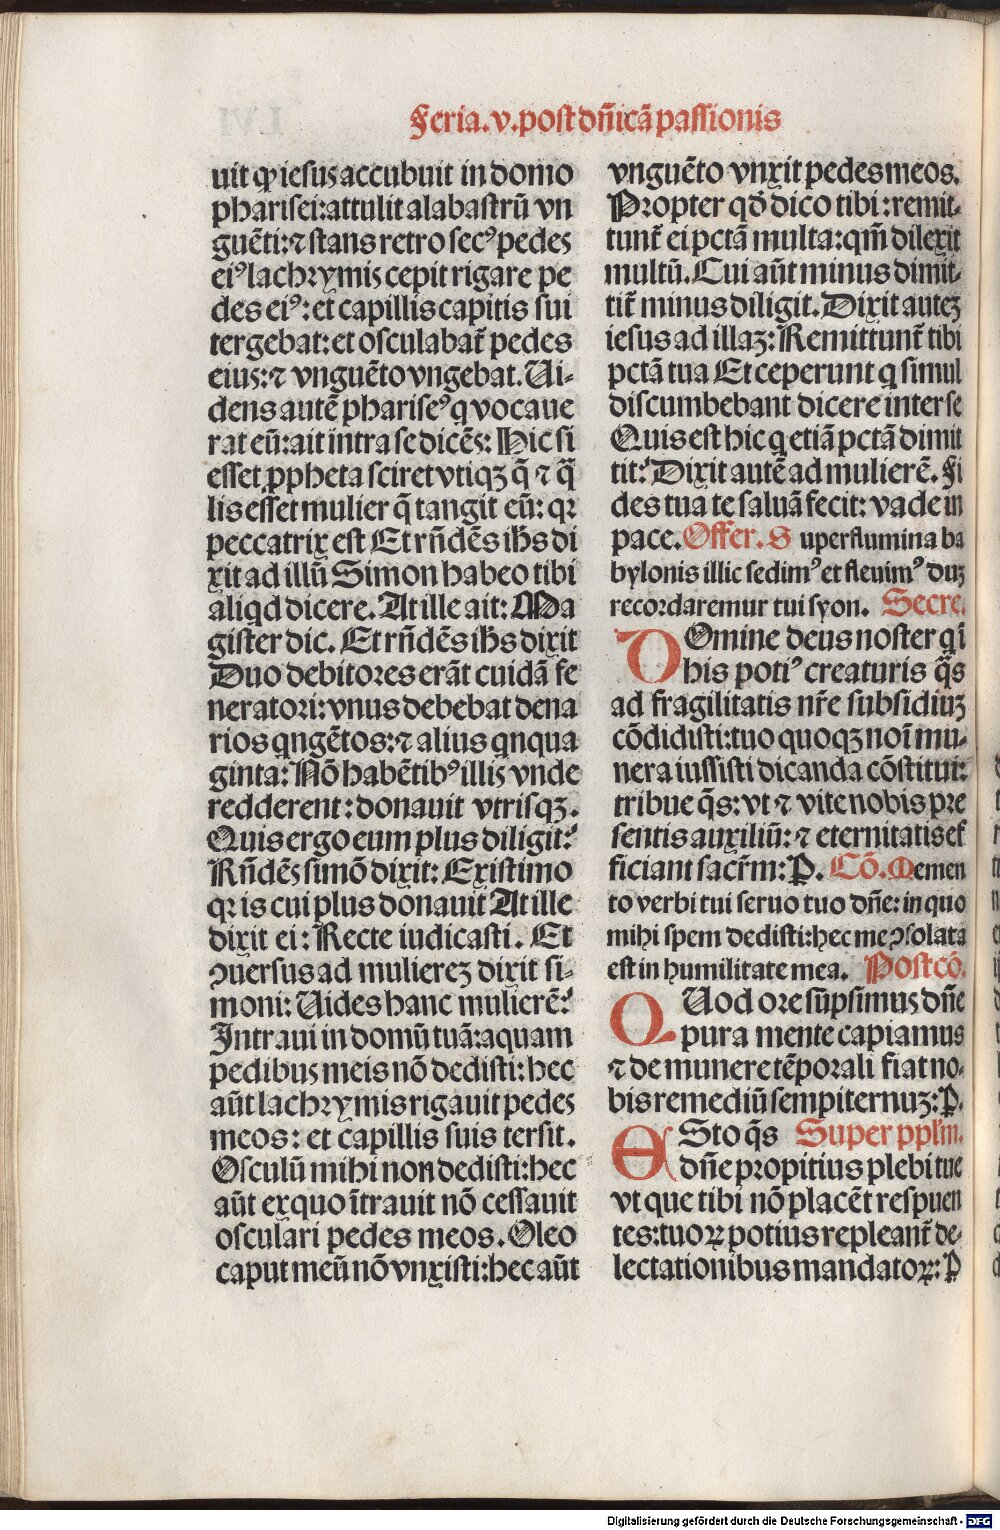 Feria.v.post dn̄icā passionis
uit ꝙ iesus accubuit in domo
pharisei:attulit alabastrū vn
guēti:⁊ stans retro secꝰ pedes
eiꝰ lachrymis cepit rigare pe
des eiꝰ: et capillis capitis sui
tergebat: et osculabat̄ pedes
eius:⁊ vnguēto vngebat. Ui-
dens autē phariseꝰ q vocaue
rat eū:ait intra se dicēs: Hic si
esset ꝓpheta sciret vtiqꝫ q̄ ⁊ q̄
lis esset mulier q̄ tangit eū: qꝛ
peccatrix est Et rn̄dēs ih̄s di
xit ad illū Simon habeo tibi
aliqd dicere. At ille ait: Ma
gister dic. Et rn̄dēs ih̄s dixit
Duo debitores erāt cuidā fe
neratori: vnus debebat dena
rios qngētos:⁊ alius qnqua
ginta: Nō habētibꝰ illis vnde
redderent: donauit vtrisqꝫ.
Quis ergo eum plus diligit?
Rn̄dēs simō dixit: Existimo
qꝛ is cui plus donauit At ille
dixit ei: Recte iudicasti. Et
ꝯuersus ad mulierez dixit si-
moni: Uides hanc mulierē?
Intraui in domū tuā:aquam
pedibus meis nō dedisti:hec
aūt lachrymis rigauit pedes
meos: et capillis suis tersit.
Osculū mihi non dedisti:hec
aūt ex quo ītrauit nō cessauit
osculari pedes meos. Oleo
caput meū nō vnxisti:hec aūt
vnguēto vnxit pedes meos.
Propter qd̄ dico tibi: remit-
tunt̄ ei pctā multa:qm̄ dilexit
multū. Cui aūt minus dimit-
tit̄ minus diligit. Dixit autez
iesus ad illaz: Remittunt̄ tibi
pctā tua Et ceperunt q simul
discumbebant dicere inter se
Quis est hic q etiā pctā dimit
tit? Dixit autē ad mulierē. Fi
des tua te saluā fecit: vade in
pace. Offer. S uper flumina ba
bylonis illic sedimꝰ et fleuimꝰ duz
recordaremur tui syon. Secre.
DOmine deus noster qi
his potiꝰ creaturis q̄s
ad fragilitatis nr̄e subsidiuz
cōdidisti:tuo quoqꝫ noī mu-
nera iussisti dicanda cōstitui:
tribue q̄s: vt ⁊ vite nobis pre
sentis auxiliū: ⁊ eternitatis ef
ficiant sacr̄m: P. Cō. Memen
to verbi tui seruo tuo dn̄e: in quo
mihi spem dedisti:hec me ꝯsolata
est in humilitate mea. Postcō.
QUod ore sūpsimus dn̄e
pura mente capiamus
⁊ de munere tēporali fiat no-
bis remediū sempiternuz: P.
ESto q̄s Super ppl̄m.
dn̄e propitius plebi tue
vt que tibi nō placēt respuen
tes:tuoꝝ potius repleant̄ de-
lectationibus mandatoꝝ: P
Digitalisierung gefördert durch die Deutsche Forschungsgemeinschaft - DFG